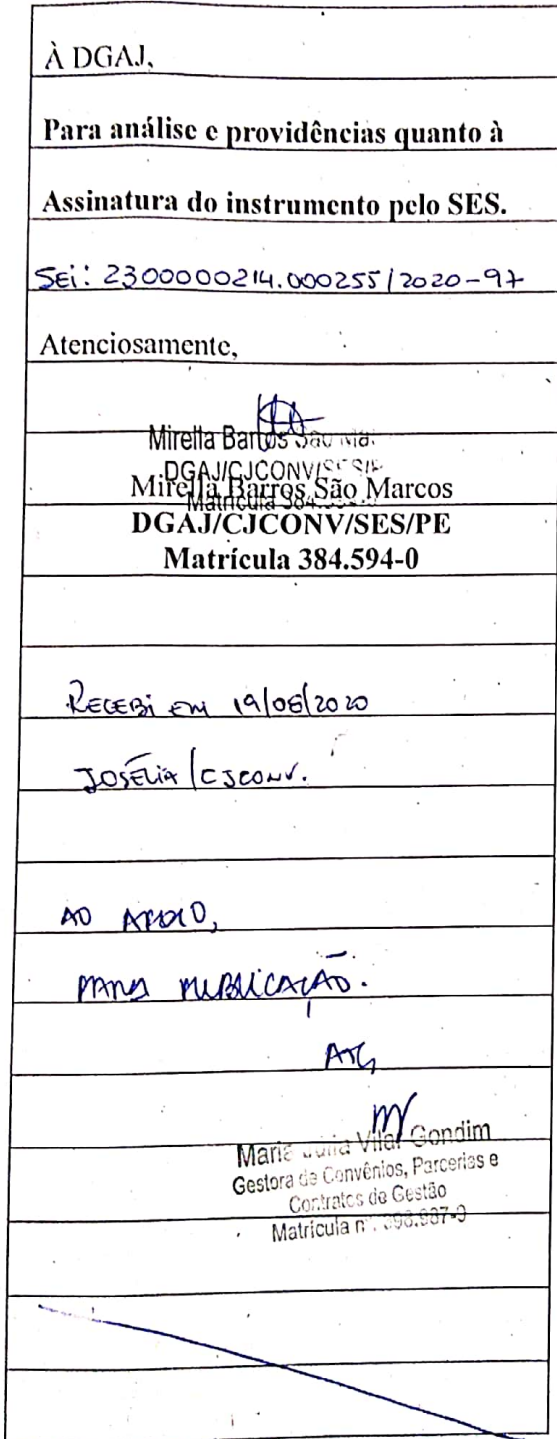 À DGAJ,
Para análise e providências quanto à
Assinatura do instrumento pelo SES.
SEi: 2300000214.000255/2020-97
Atenciosamente,
Mirella Barros São Mar
DGAJ/CJCONV/SES/P
Matrícula 384.
Mirella Barros São Marcos
DGAJ/CJCONV/SES/PE
Matrícula 384.594-0
RECEBi EM 19/06/2020
JOSÉLIA/CJCONV.
AO APOIO,
PARA PUBLICAÇÃO.
Maria Vilar Gondim
Gestora de Convênios, Parcerias e
Contratos de Gestão
Matrícula nº.